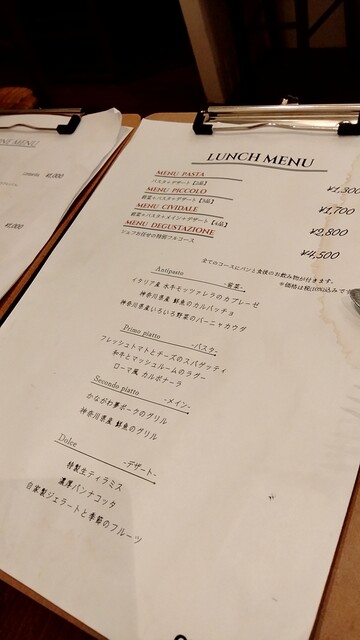 LUNCH MENU
MENU PASTA ¥1,300
パスタ+デザート【3品】
MENU PICCOLO ¥1,700
前菜+パスタ+デザート【3品】
MENU CIVIDALE ¥2,800
前菜+パスタ+メイン+デザート
MENU DEGUSTAZIONE ¥4,500
シェフお任せの特別フルコース
全てのコースにパンと食後のお飲み物が付きます。
※価格は税(10%)込みで
Antipasto -前菜-
イタリア産 水牛モッツァレラのカプレーゼ
神奈川県産 鮮魚のカルパッチョ
神奈川県産いろいろ野菜のバーニャカウダ
Primo piatto -パスタ-
フレッシュトマトとチーズのスパゲッティ
和牛とマッシュルームのラグー
ローマ風 カルボナーラ
Secondo piatto -メイン-
かながわ夢ポークのグリル
神奈川県産 鮮魚のグリル
Dolce -デザート-
特製生ティラミス
濃厚パンナコッタ
自家製ジェラートと季節のフルーツ
MENU
¥1,000
¥1,000